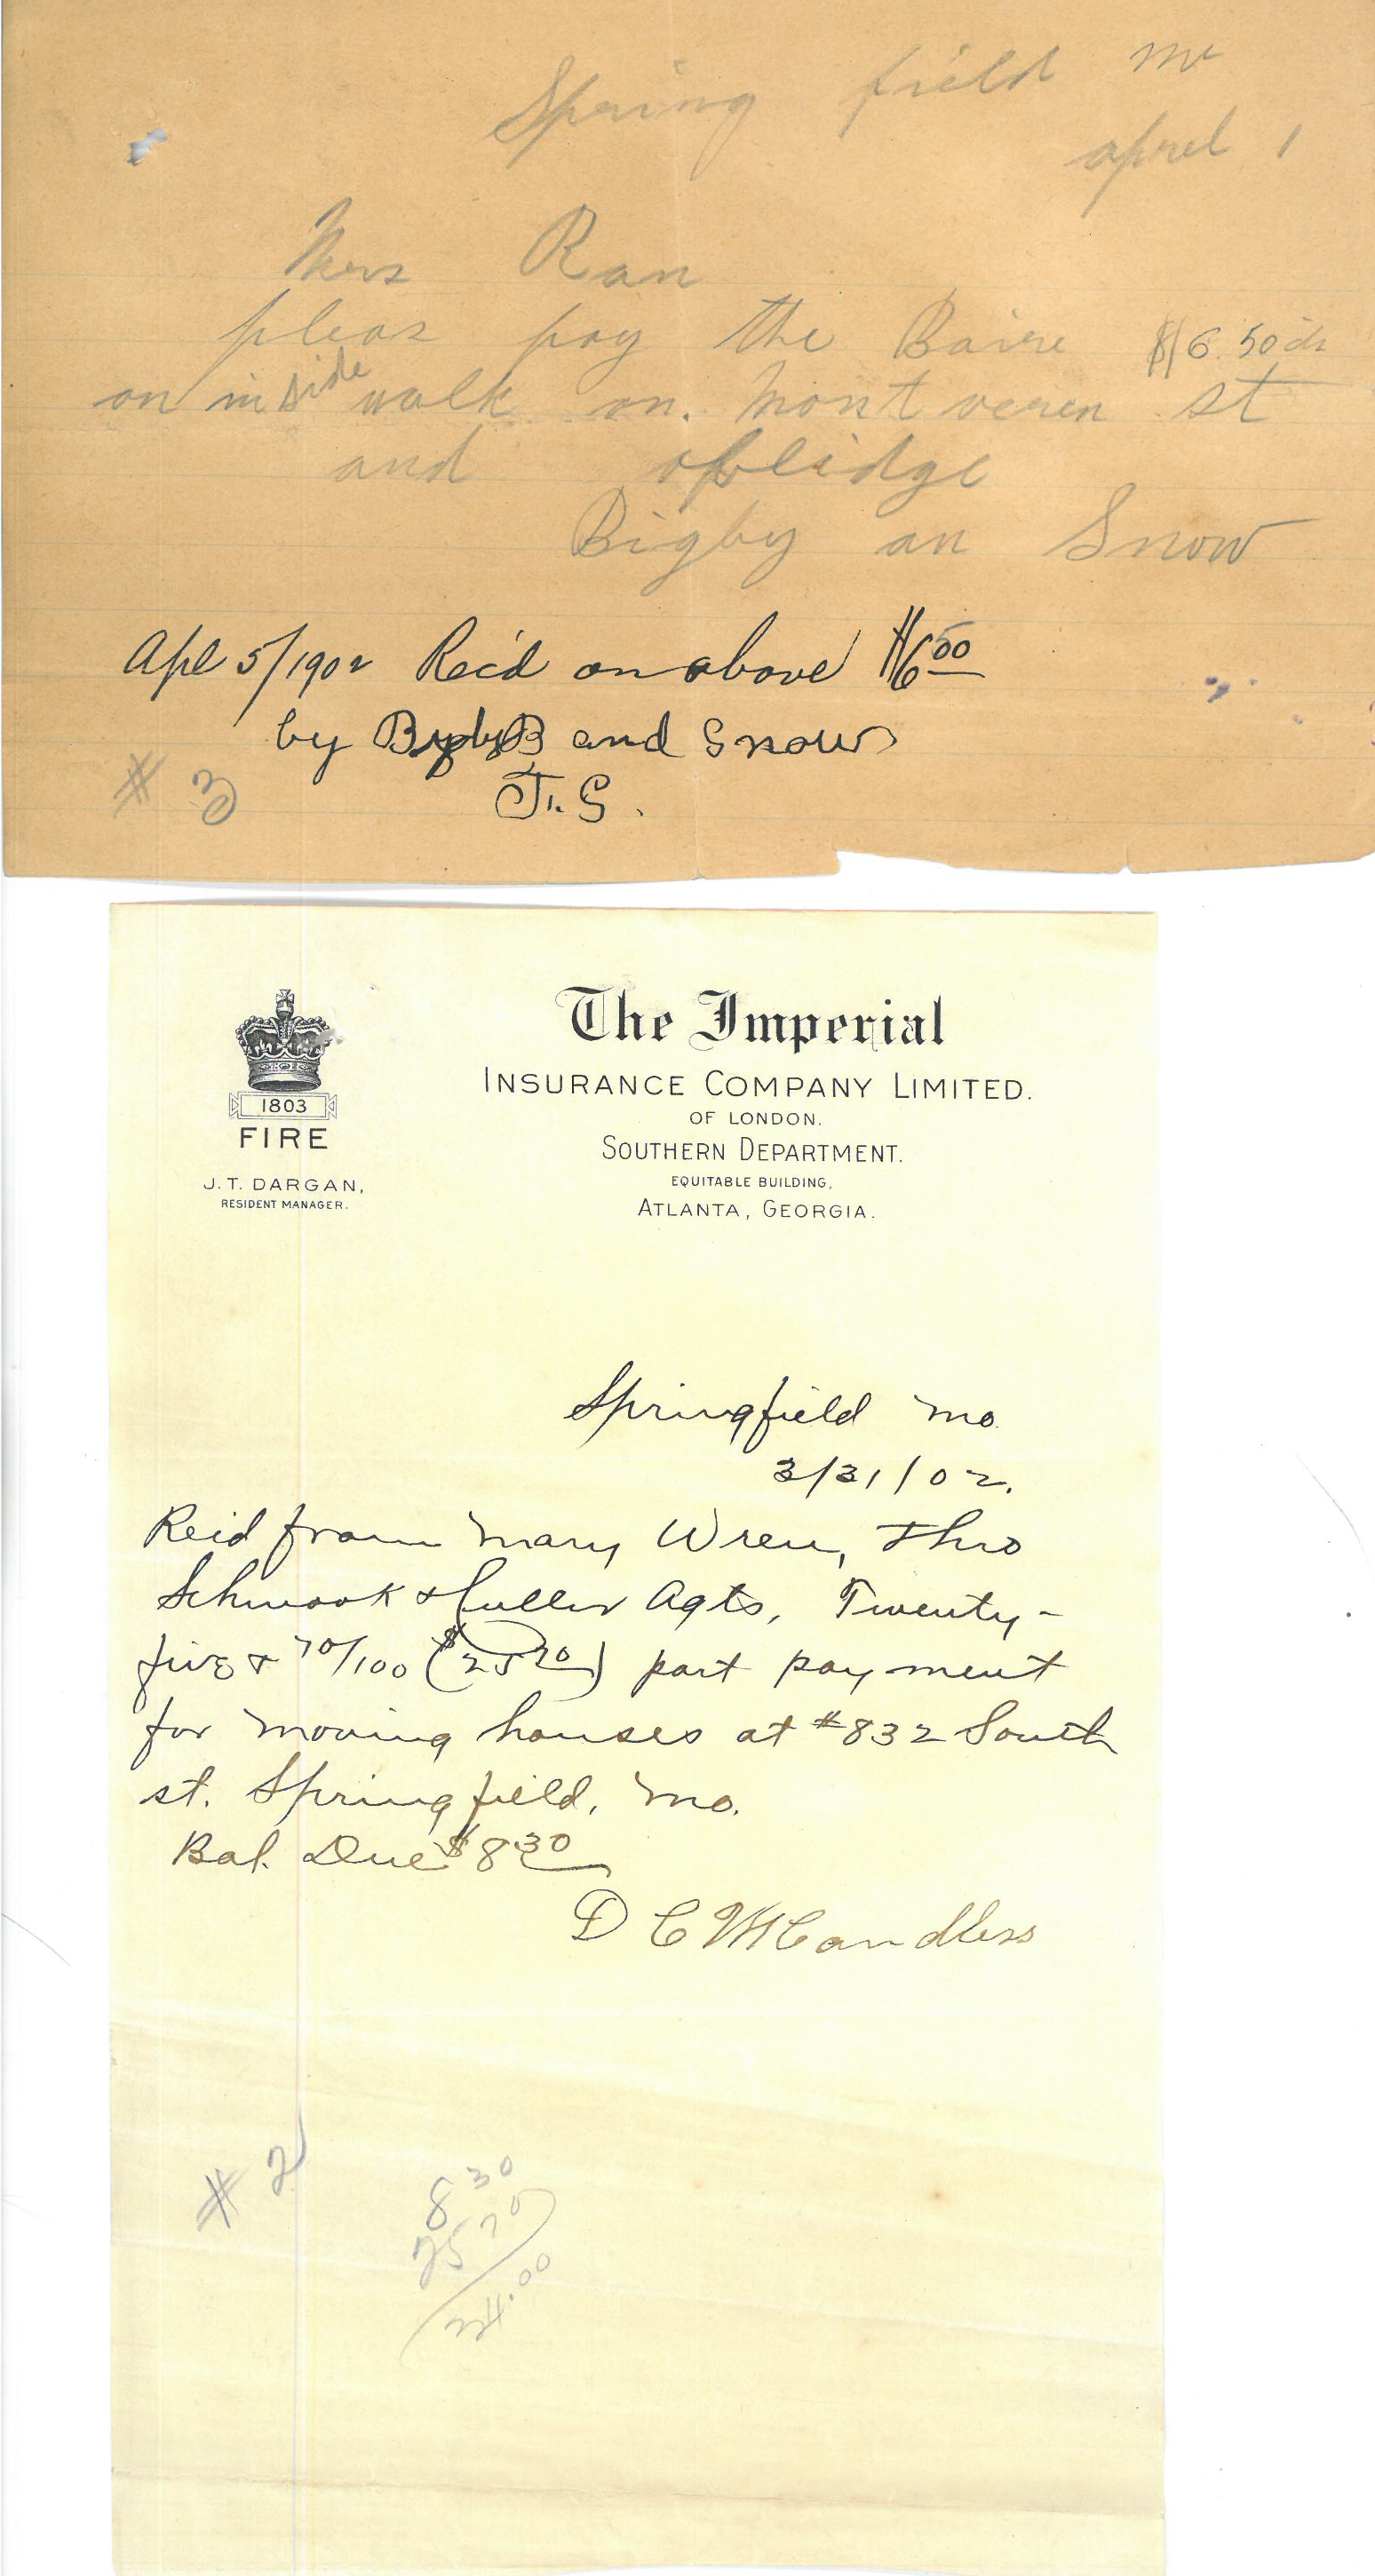 Spring field Mo
aprel 1
Mrs Ran
pleas pay the Baire $6.50 cts
on in side walk on. Mont veren st
and oblidge
Bigby an Snow
Apl 5/1902 Rec'd on above $6 50
by Bigby and Snow
J. S.
# 3
1803
FIRE
J. T. DARGAN,
RESIDENT MANAGER.
The Imperial
INSURANCE COMPANY LIMITED.
OF LONDON.
SOUTHERN DEPARTMENT.
EQUITABLE BUILDING,
ATLANTA, GEORGIA.
Springfield Mo.
3/31/02.
Recd from Mary Wren, thro
& Agts, Twenty-
five & 70/100 ($25 70) part payment
for moving houses at #832 South
st. Springfield, Mo.
Bal. Due $8 30
D C McCandless
# 2
8 30
25 70
34.00